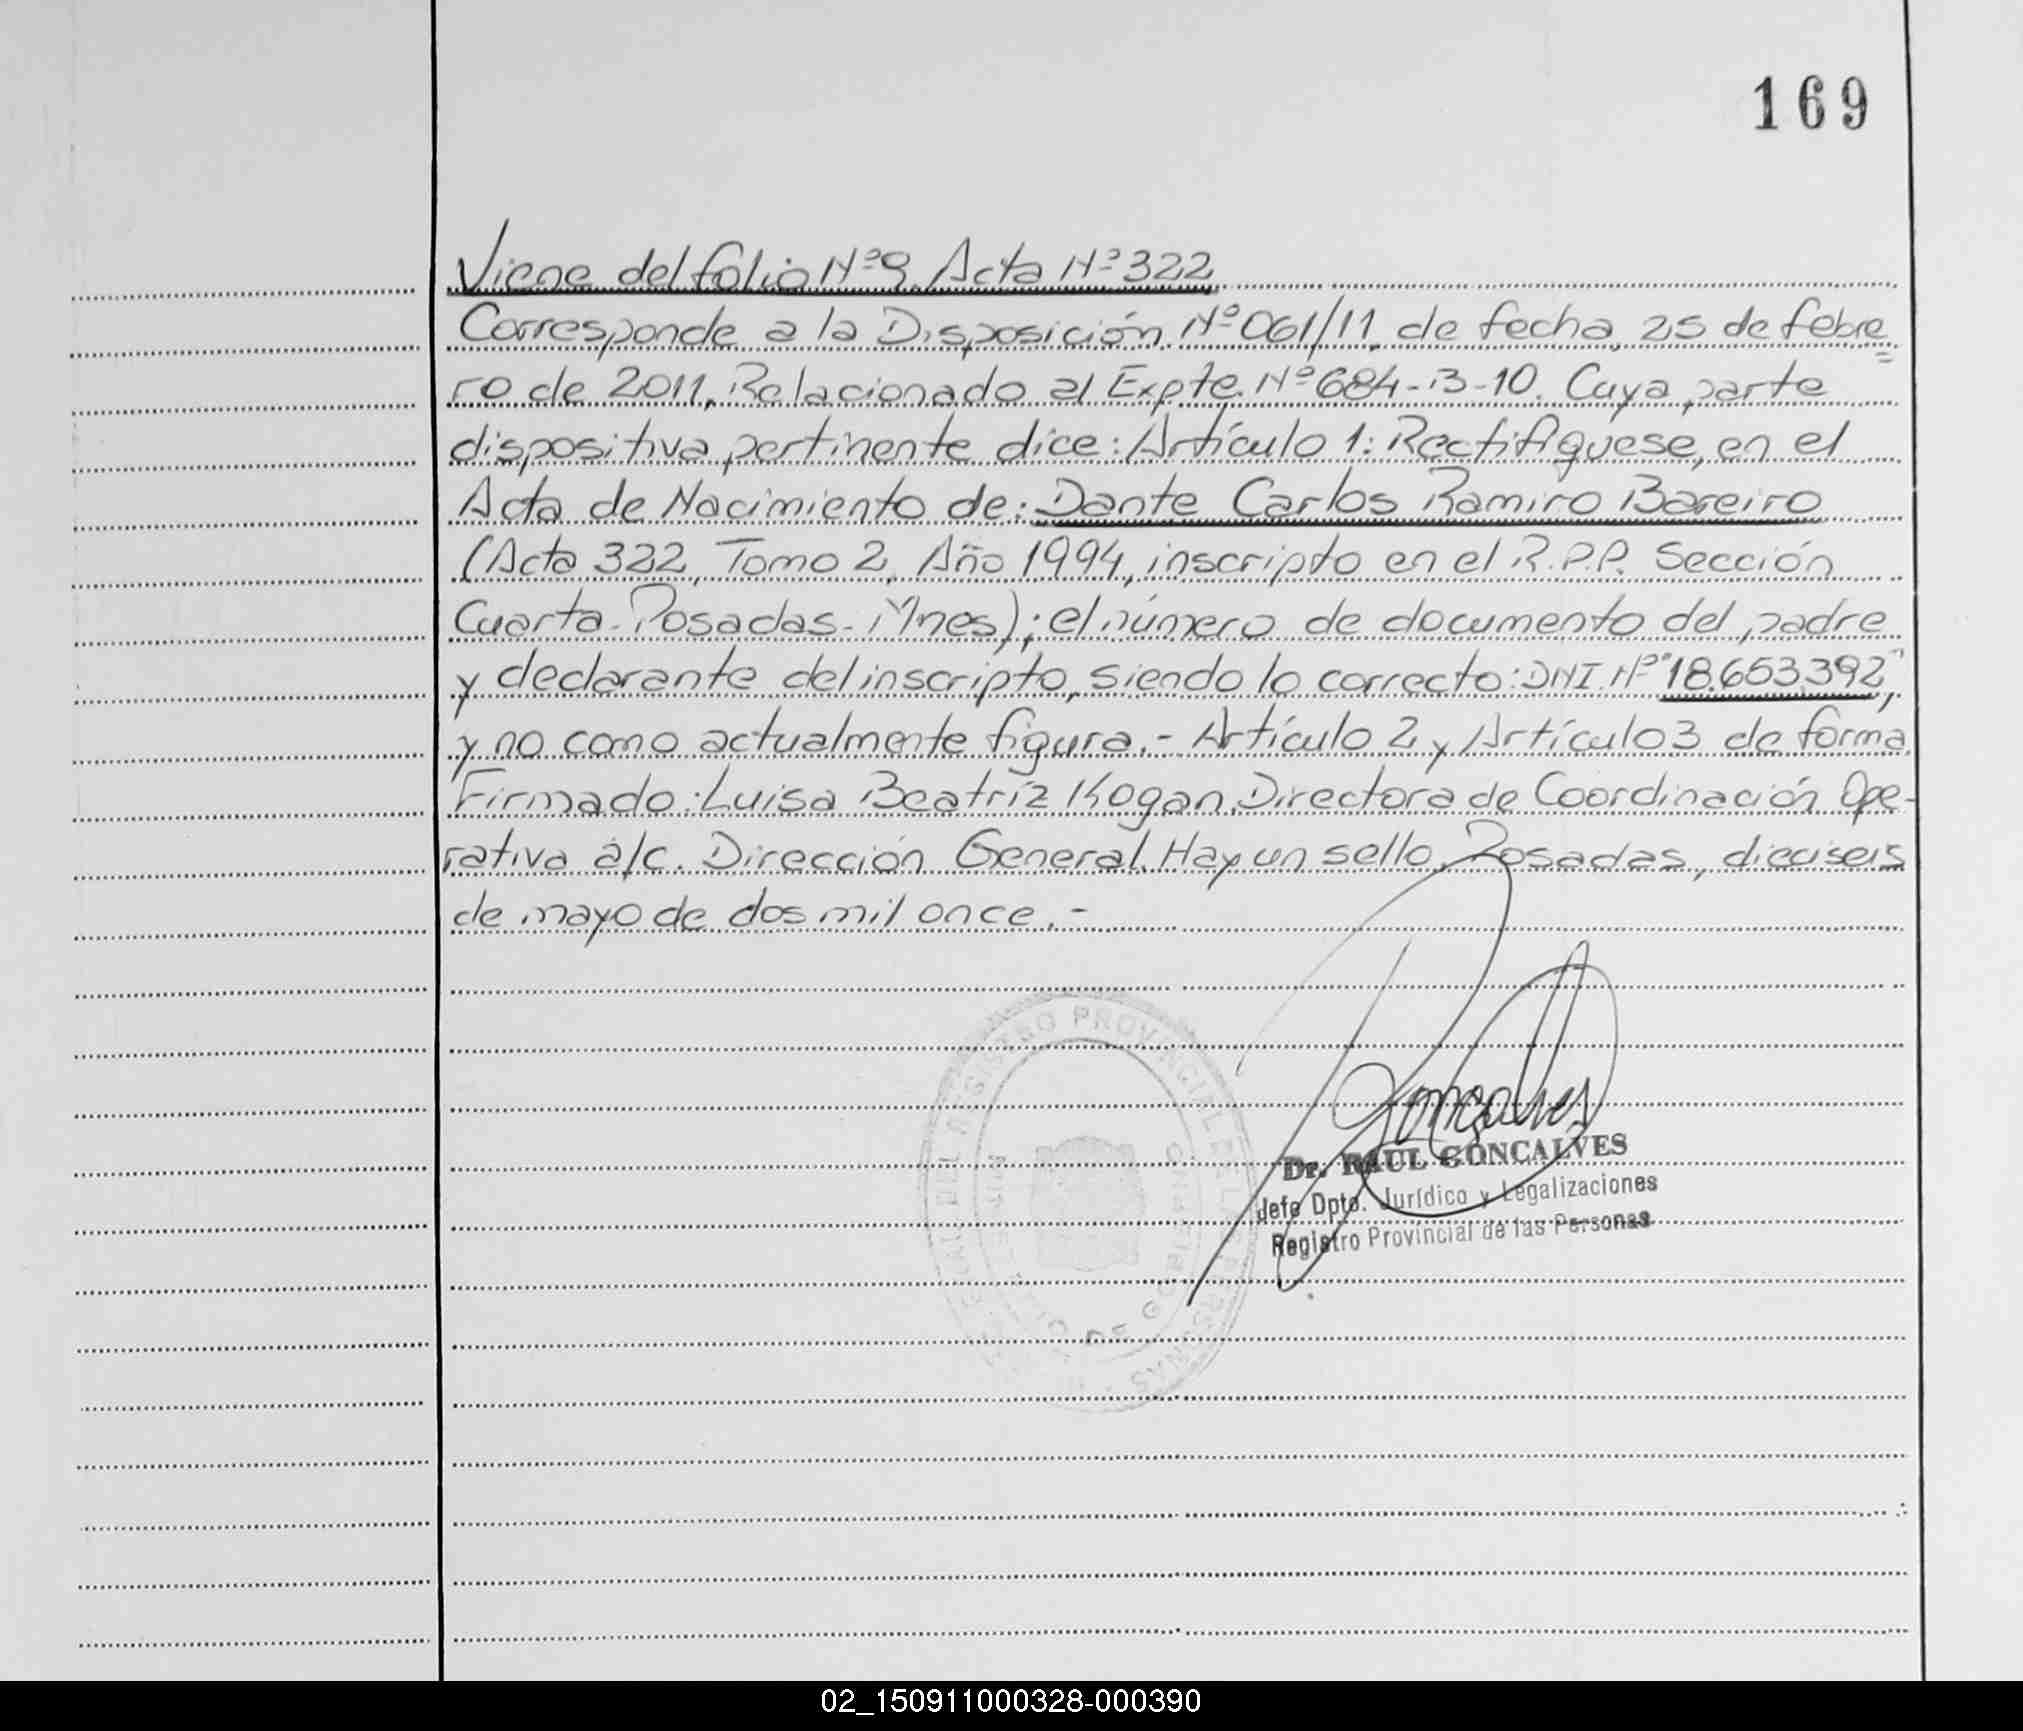 169
Viene del folio Nº 9. Acta Nº 322
Corresponde a la Disposición Nº 061/11, de fecha, 25 de febre
ro de 2011, Relacionado al Expte. Nº 684-B-10. Cuya parte
dispositiva pertinente dice: Artículo 1: Rectifíquese, en el
Acta de Nacimiento de: Dante Carlos Ramiro Bareiro
(Acta 322, Tomo 2, Año 1994, inscripto en el R.P.P. Sección
Cuarta-Posadas-Mnes); el número de documento del padre
y declarante del inscripto, siendo lo correcto: DNI. Nº "18.653.392",
y no como actualmente figura.- Artículo 2 y Artículo 3 de forma.
Firmado: Luisa Beatríz Kogan. Directora de Coordinación Ope-
rativa a/c. Dirección General. Hay un sello. Posadas, dieciseis
de mayo de dos mil once.-
REGISTRO PROVINCIAL DE LAS PERSONAS
Goncalves
Dr. RAUL GONCALVES
Jefe Dpto. Jurídico y Legalizaciones
Registro Provincial de las Personas
02_150911000328-000390